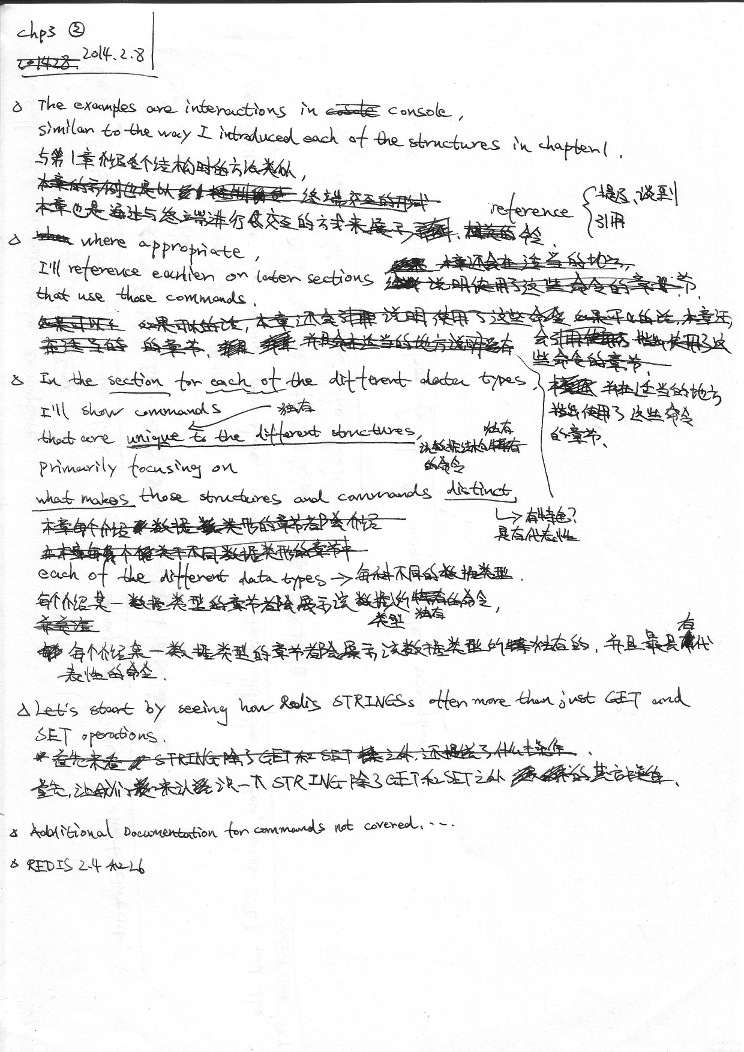 chp3 ②
201428 2014.2.8
△ The examples are interactions in console,
similar to the way I introduced each of the structures in chapter 1.
与第1章介绍各个结构时的方法类似,
本章的示例也是以 终端交互的形式
本章也是通过与终端进行交互的方式来展示 命令.
reference { 提及、谈到
引用
△ where appropriate,
I'll reference earlier or later sections
that use those commands.
本章还会在适当的地方,
说明使用了这些命令的章节.
如果可以的话,本章还会引用 说明 使用了这些命令
的章节. 并且会在适当的地方说明
如果可以的话,本章还
会引用 使用了这
些命令的章节.
并在适当的地方
指出使用了这些命令
的章节.
△ In the section for each of the different data types,
I'll show commands
独有
that are unique to the different structures,
独有
该数据结构特有
的命令
primarily focusing on
what makes those structures and commands distinct
↳ 有特色?
具有代表性
本章每个介绍 数据类型的章节都会介绍
个关于不同数据类型的章节中
each of the different data types → 每种不同的数据类型.
每个介绍某一数据类型的章节都会展示该数据 的特有的命令,
类型 独有
每个介绍某一数据类型的章节都会展示该数据类型的独有的, 并且最具有代
表性的命令.
△ Let's start by seeing how Redis STRINGs offer more than just GET and
SET operations.
首先来看 STRING 除了GET和SET之外,还提供了什么操作.
首先,让我们来认识一下 STRING 除了GET和SET之外 的其它操作.
△ Additional Documentation for commands not covered. ....
△ REDIS 2.4 和 2.6